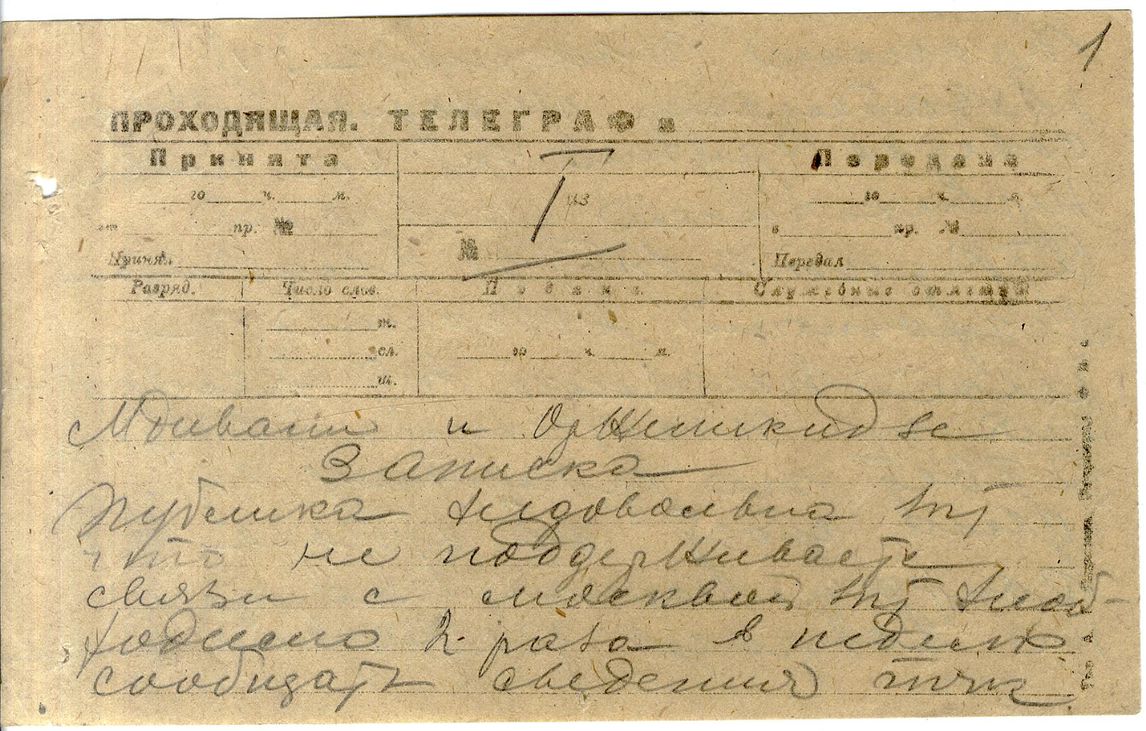 1
ПРОХОДЯЩАЯ. ТЕЛЕГРАФ в
Принята
го ч. м.
от пр. №
Принял
I
из
№
Передана
го ч. м.
в пр. №
Передал
Разряд. Число слов. Подана Служебные отметки
т.
сл. го ч. м.
ш.
Мдивани и Орджникидзе
Записка
публика недовольна тчк
что не поддерживаете
связи с москвой тчк необ-
ходимо 2 раза в неделю
сообщать сведения тчк